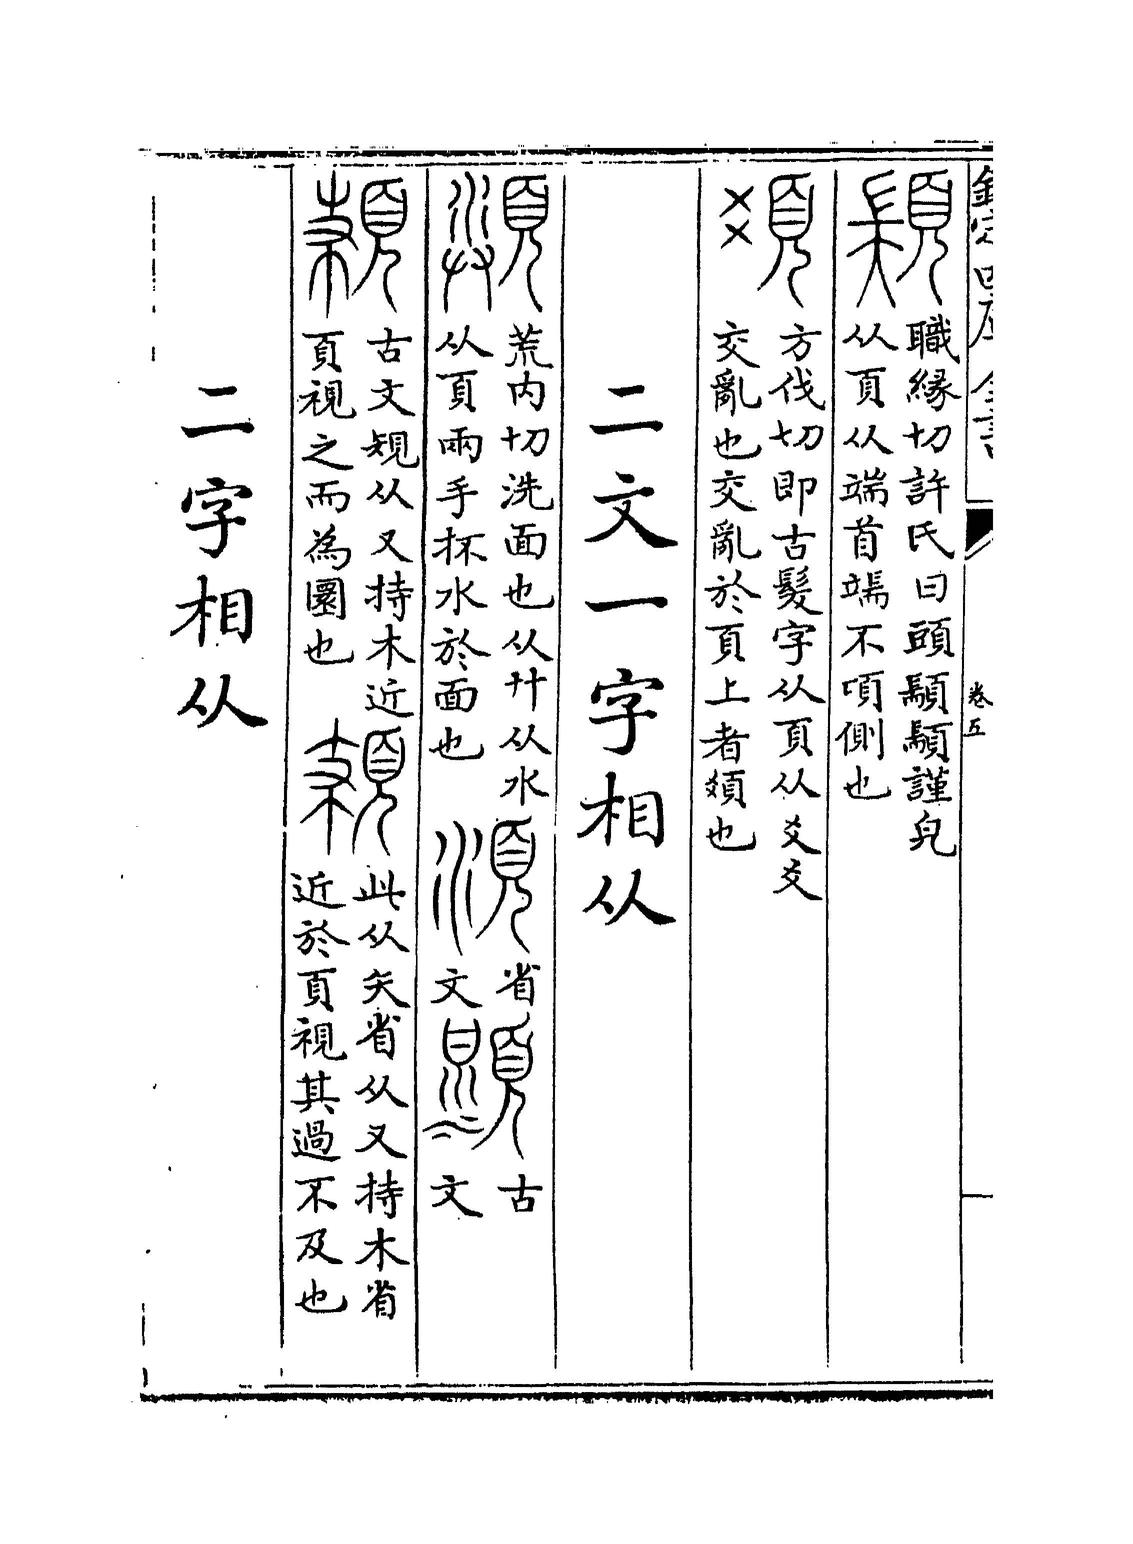 欽定四庫全書
卷五
職緣切許氏曰頭顓顓謹皃
从頁从耑首耑不項側也
方伐切即古髮字从頁从爻爻
交亂也交亂於頁上者頦也
二文一字相从
荒内切洗面也从廾从水
从頁兩手抔水於面也
省
文
古
文
古文規从又持木近
頁視之而為圜也
此从矢省从又持木省
近於頁視其過不及也
二字相从